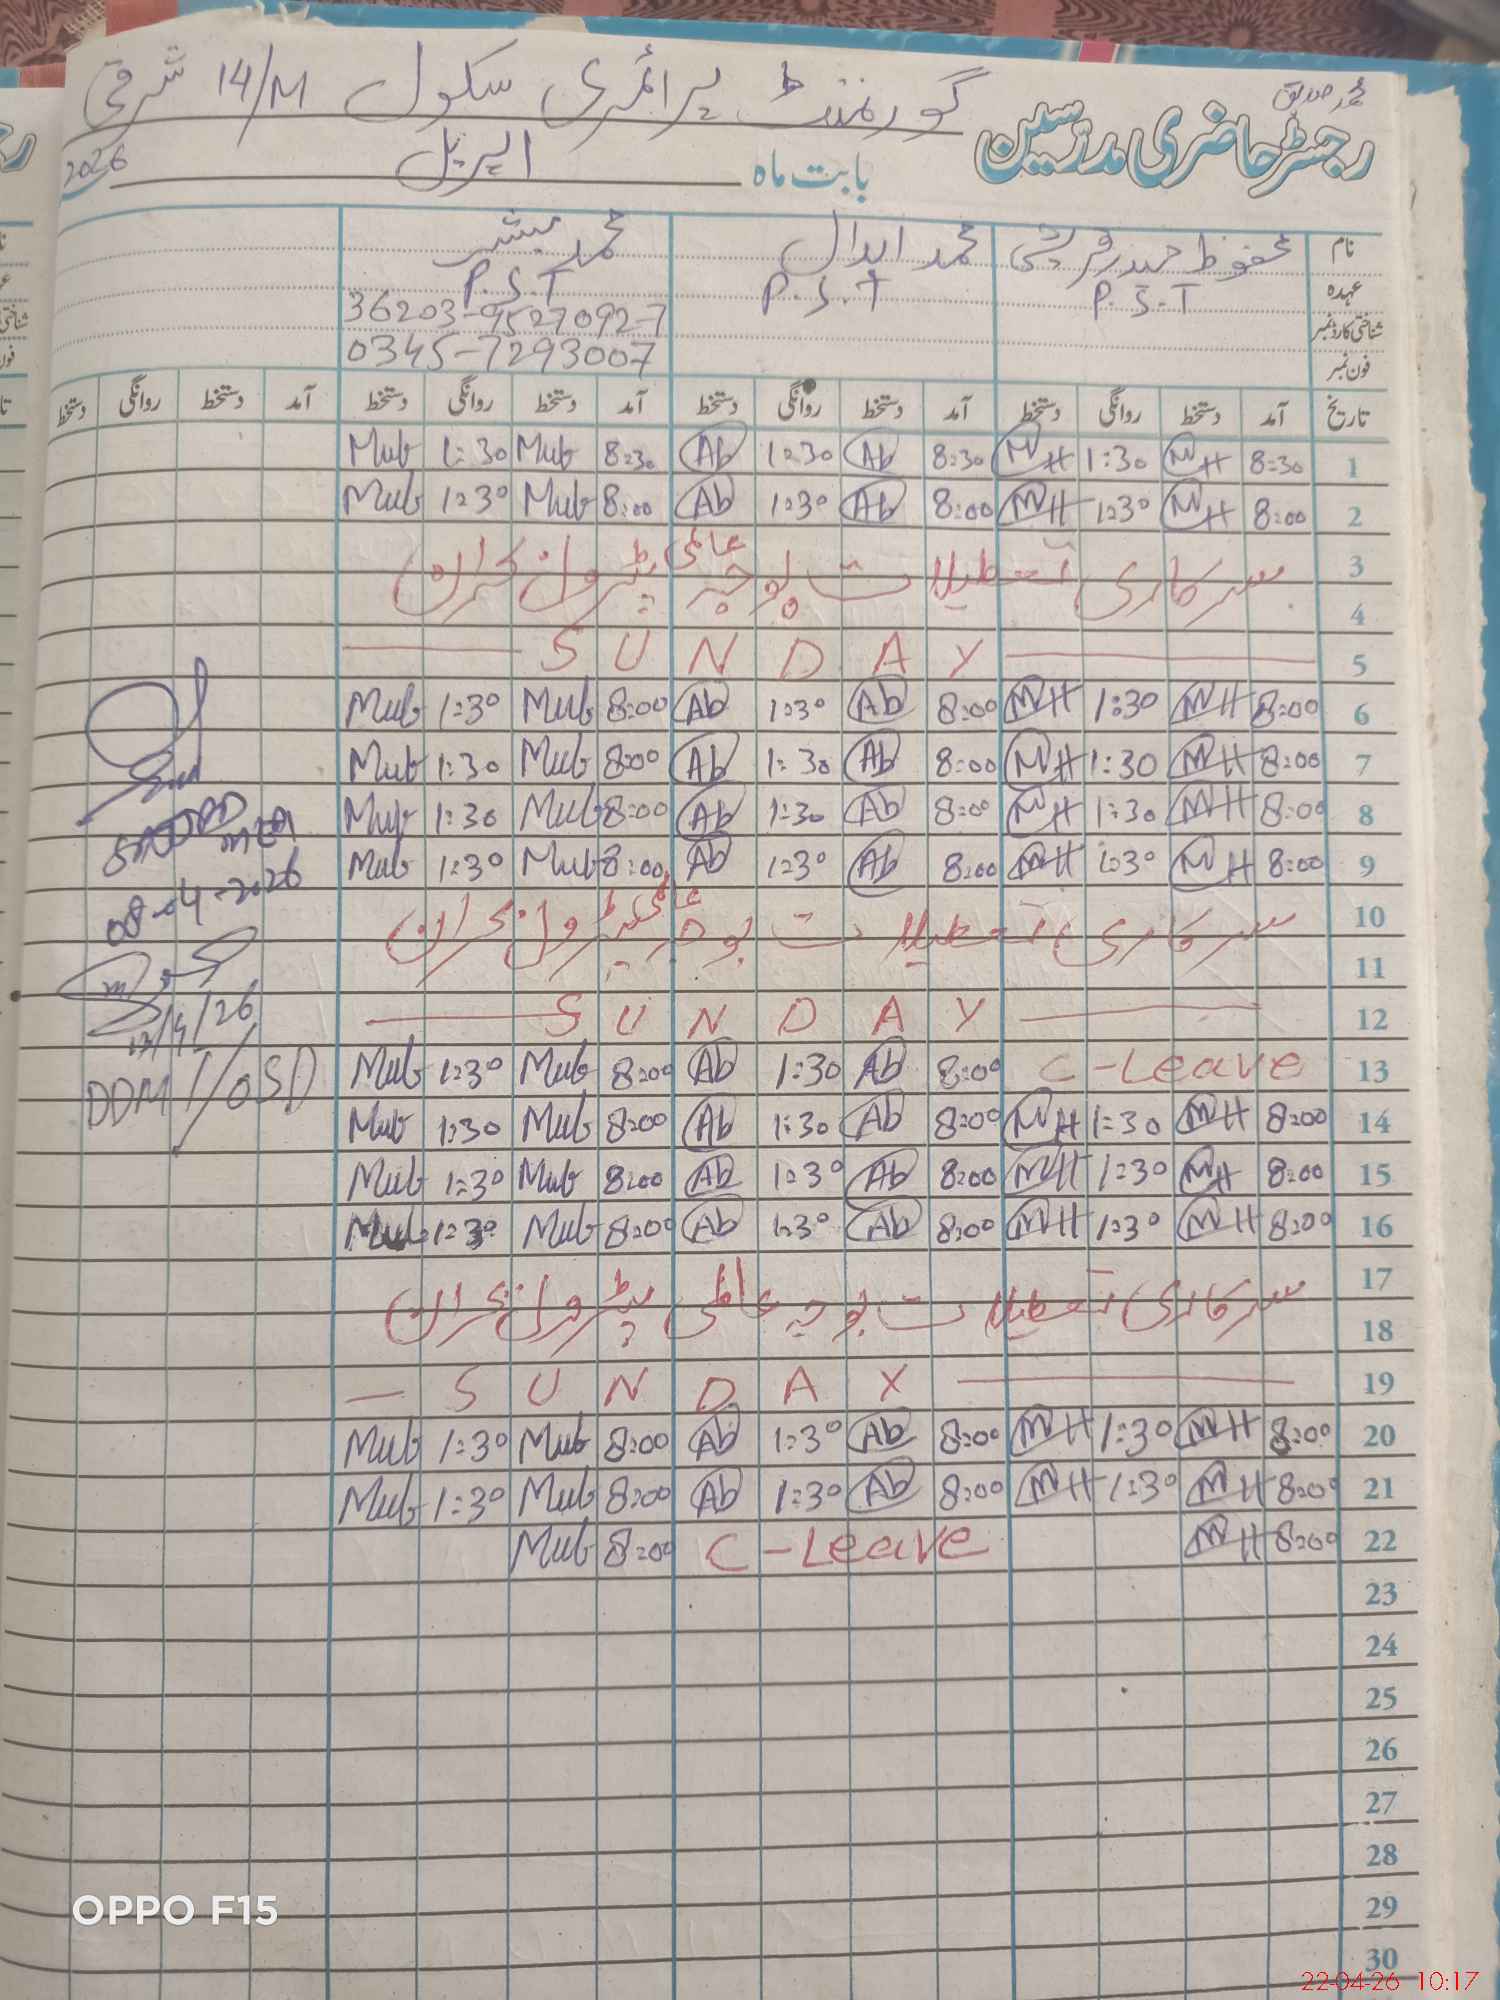 گورنمنٹ پرائمری سکول 14/M شرقی
محمد صدیق
رجسٹر حاضری مدرسین
بابت ماہ اپریل 2026
نام محفوظ حیدر قریشی محمد ابدال محمد مبشر
عہدہ P.S.T P.S.T P.S.T
شناختی کارڈ نمبر 36203-9527092-7
فون نمبر 0345-7293007
تاریخ آمد دستخط روانگی دستخط آمد دستخط روانگی دستخط آمد دستخط روانگی دستخط آمد دستخط روانگی دستخط
1 8:30 MH 1:30 MH 8:30 Ab 1:30 Ab 8:30 Mub 1:30 Mub
2 8:00 MH 1:30 MH 8:00 Ab 1:30 Ab 8:00 Mub 1:30 Mub
3
سرکاری تعطیلات بوجہ عالمی پٹرول بحران
4
5 SUNDAY
6 8:00 MH 1:30 MH 8:00 Ab 1:30 Ab 8:00 Mub 1:30 Mub
7 8:00 MH 1:30 MH 8:00 Ab 1:30 Ab 8:00 Mub 1:30 Mub
8 8:00 MH 1:30 MH 8:00 Ab 1:30 Ab 8:00 Mub 1:30 Mub
9 8:00 MH 1:30 MH 8:00 Ab 1:30 Ab 8:00 Mub 1:30 Mub
08-04-2026
10
سرکاری تعطیلات بوجہ عالمی پیٹرول بحران
11
12 SUNDAY
13 C-Leave 8:00 Ab 1:30 Ab 8:00 Mub 1:30 Mub
DDM I/OSD
14 8:00 MH 1:30 MH 8:00 Ab 1:30 Ab 8:00 Mub 1:30 Mub
15 8:00 MH 1:30 MH 8:00 Ab 1:30 Ab 8:00 Mub 1:30 Mub
16 8:00 MH 1:30 MH 8:00 Ab 1:30 Ab 8:00 Mub 1:30 Mub
17
سرکاری تعطیلات بوجہ عالمی پیٹرول بحران
18
19 SUNDAY
20 8:00 MH 1:30 MH 8:00 Ab 1:30 Ab 8:00 Mub 1:30 Mub
21 8:00 MH 1:30 MH 8:00 Ab 1:30 Ab 8:00 Mub 1:30 Mub
22 8:00 MH C-Leave 8:00 Mub
23
24
25
26
27
28
29
30
OPPO F15
22-04-26 10:17